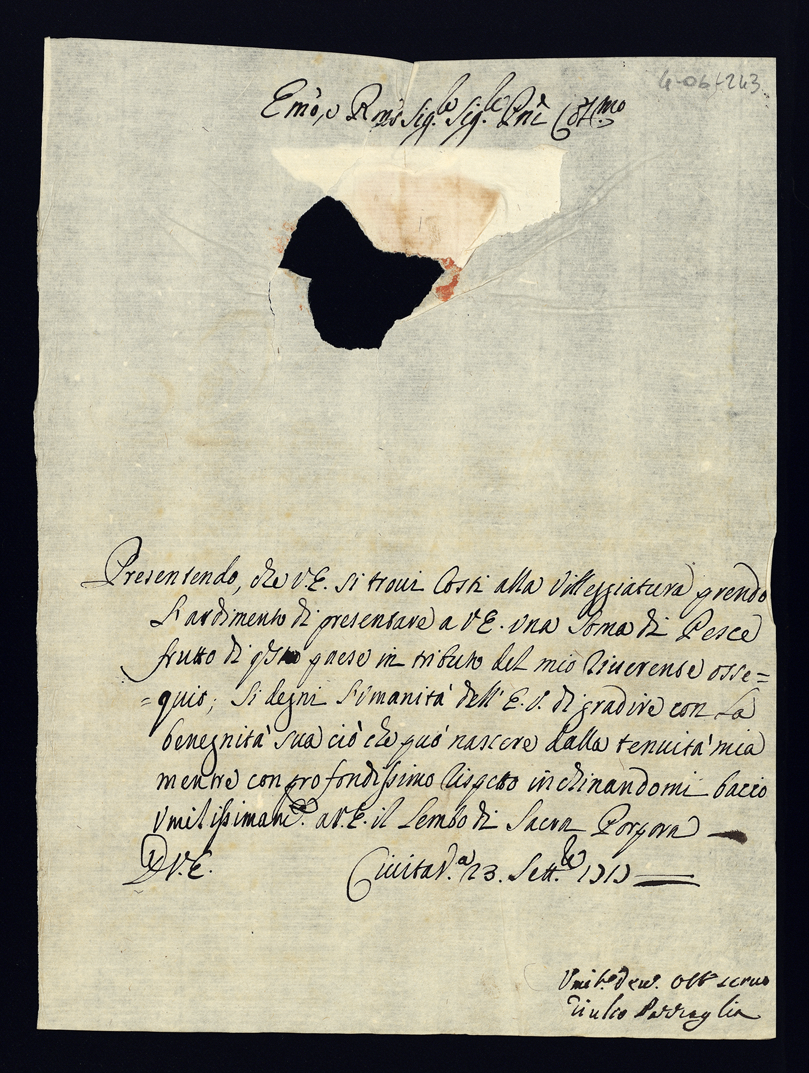 4-06-243
Emo, e Rmo Sig.re Sig.re Pne Col.mo
Presentendo, che V.E. si trovi Costì alla Villeggiatura prendo
l'ardimento di presentare a V.E. una soma di Pesce
frutto di qsto paese in tributo del mio riverente osse=
=quio; si degni l'Umanità dell'E.V. di gradire con la
benegnità sua ciò che può nascere dalla tenuità mia
mentre con profondissimo rispetto inchinandomi bacio
Umilissimam.e a V.E. il Lembo di Sacra Porpora
D V.E. Civitav.a 23. Sett.re
Umil.o dev.o Obb servo
Giulio